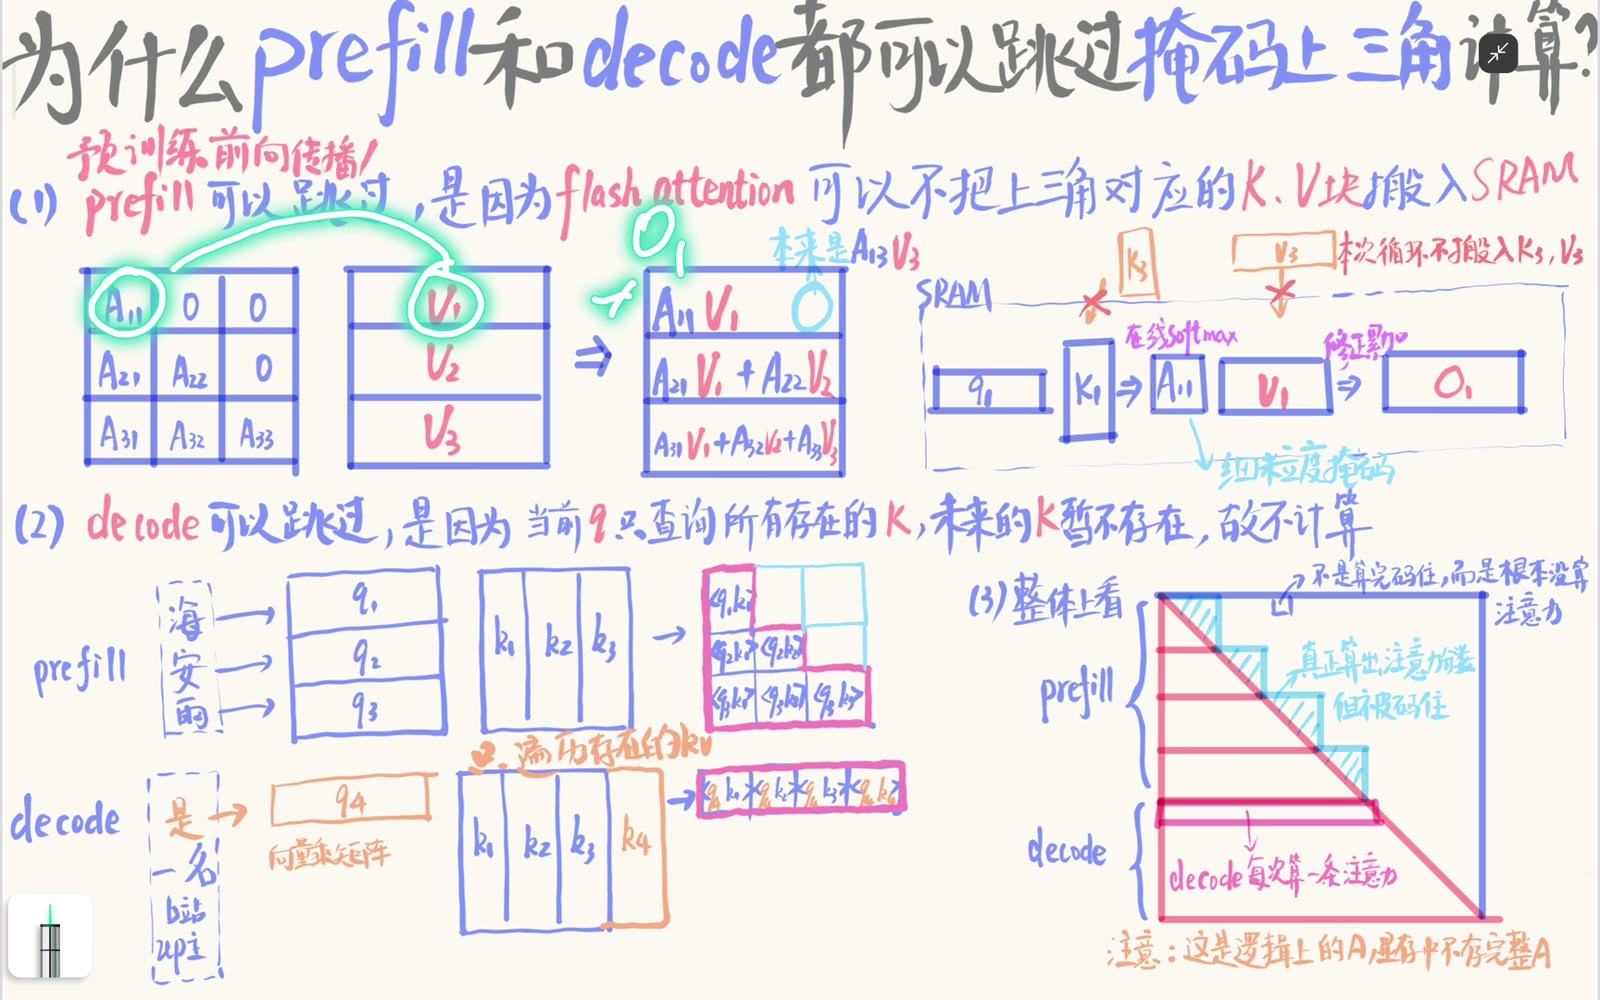 为什么prefill和decode都可以跳过掩码上三角计算?
预训练前向传播/
(1) prefill 可以跳过,是因为flash attention 可以不把上三角对应的K、V块搬入SRAM
O₁
本来是A₁₃V₃
K₃ V₃ 本次循环不搬入K₃,V₃
SRAM
A₁₁ 0 0
A₂₁ A₂₂ 0
A₃₁ A₃₂ A₃₃
V₁
V₂
V₃
⇒
A₁₁V₁ 0
A₂₁V₁+A₂₂V₂
A₃₁V₁+A₃₂V₂+A₃₃V₃
在线softmax 修正累加
q₁ K₁ ⇒ A₁₁ V₁ ⇒ O₁
细粒度掩码
(2) decode 可以跳过,是因为当前q只查询所有存在的K,未来的K暂不存在,故不计算
prefill
海
安
雨
q₁
q₂
q₃
k₁ k₂ k₃
<q₁k₁>
<q₂k₁> <q₂k₂>
<q₃k₁> <q₃k₂> <q₃k₃>
遍历存在的kv
decode
是
一名
b站
up主
q₄
向量乘矩阵
k₁ k₂ k₃ k₄
<q₄k₁> <q₄k₂> <q₄k₃> <q₄k₄>
(3) 整体上看
不是算完码住,而是根本没算
注意力
真正算出注意力分数
但被码住
prefill
decode
decode每次算一条注意力
注意:这是逻辑上的A,显存中不存完整A